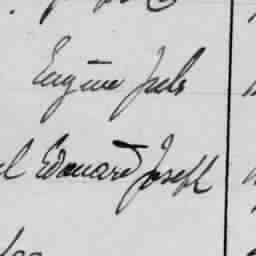 Eugène Jules
Edouard Joseph